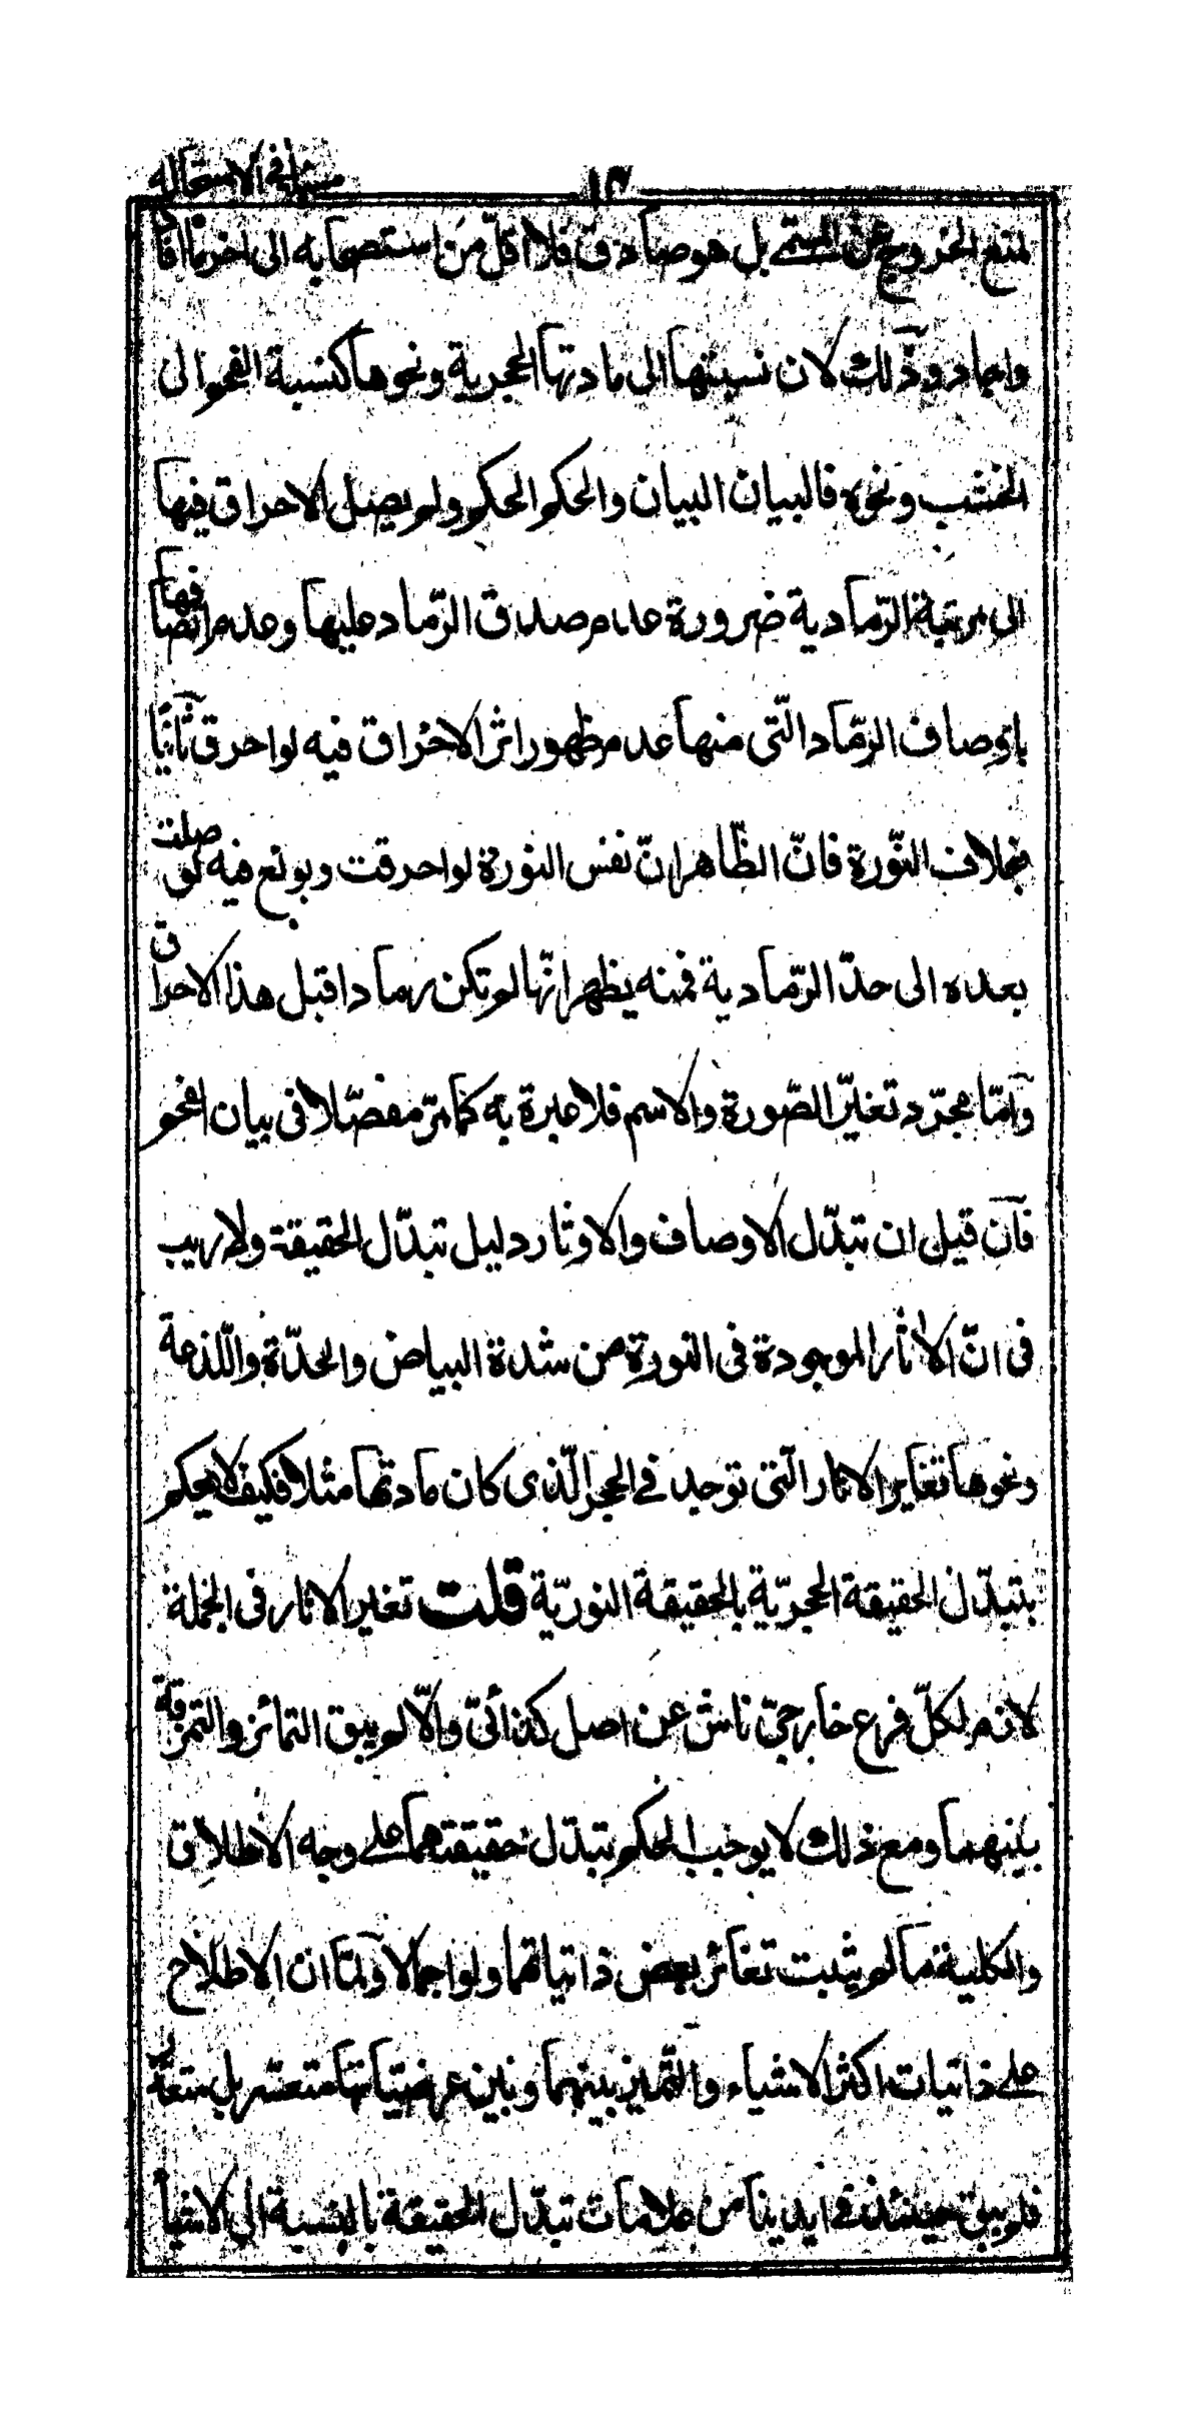 ١٣
في الاستحالة
لمنع الخروج عن المسمى بل هو صادق فلا اقل من استصحابه الى اخر ما افاد
واجاد وذلك لان نسبتها الى مادتها الحجرية ونحوها كنسبة الفحم الى
الخشب ونحوه فالبيان البيان والحكم الحكم ولم يصل الاحراق فيها
الى مرتبة الرّمادية ضرورة عدم صدق الرّماد عليها وعدم اتصافها
باوصاف الرّماد الّتى منها عدم ظهور اثر الاحراق فيه لو احرق ثانيًا
بخلاف النّورة فانّ الظّاهر انّ نفس النورة لو احرقت وبولغ فيه لوصلت
بعده الى حدّ الرّمادية فمنه يظهر انّها لم تكن رمادا قبل هذا الاحراق
وامّا مجرّد تغيّر الصّورة والاسم فلا عبرة به كما مرّ مفصّلا فى بيان الفحم
فان قيل ان تبدّل الاوصاف والاثار دليل تبدّل الحقيقة ولا ريب
فى انّ الاثار الموجودة فى النورة من شدة البياض والحدّة واللّذعة
ونحوها تغاير الاثار الّتى توجد في الحجر الّذى كان مادتها مثلا فكيف لا يحكم
بتبدّل الحقيقة الحجريّة بالحقيقة النوريّة قلت تغير الاثار فى الجملة
لازم لكلّ فرع خارجىّ ناش عن اصل كذائىّ والّا لم يبق التمائز والتفرقة
بينهما ومع ذلك لا يوجب الحكم بتبدّل حقيقتهما على وجه الاطلاق
والكلية ما لم يثبت تغائر بعض ذاتياتهما ولو اجمالا ولمّا ان الاطلاع
على ذاتيات اكثر الاشياء والتّميز بينهما وبين عرضيّاتها متعسّر بل متعذّر
فلم يبق حينئذ فى ايدينا من علامات تبدّل الحقيقة بالنسبة الى الاشيأ